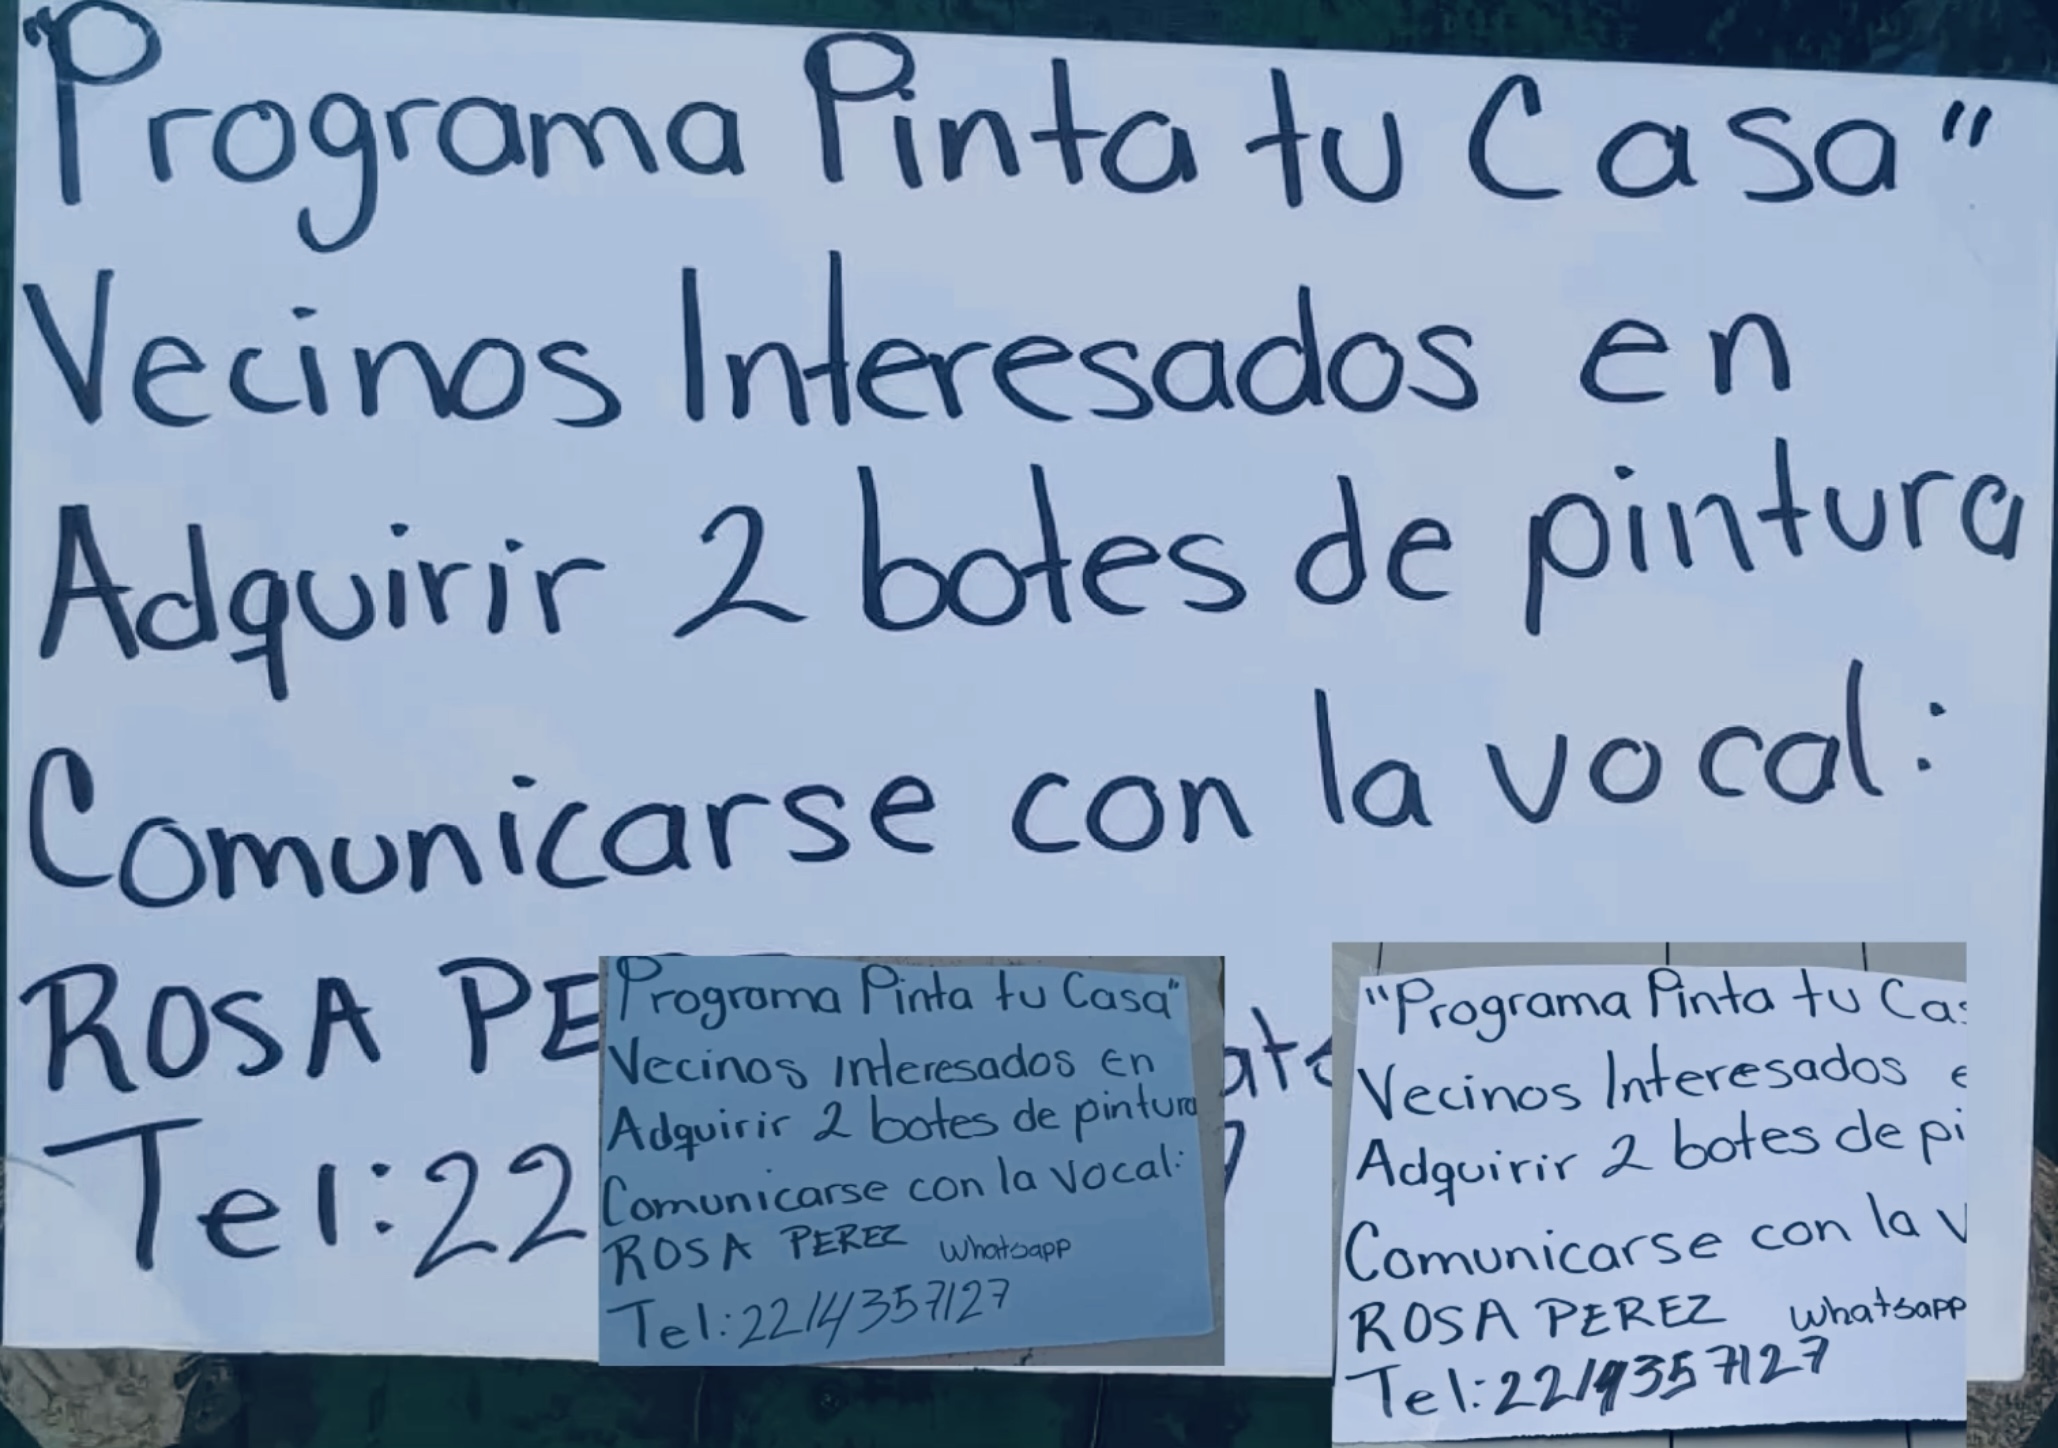 "Programa Pinta tu Casa"
Vecinos Interesados en
Adquirir 2 botes de pintura
Comunicarse con la vocal:
ROSA PE
Tel:22
Programa Pinta tu Casa"
Vecinos interesados en
Adquirir 2 botes de pintura
Comunicarse con la vocal:
ROSA PEREZ Whatsapp
Tel:2214357127
"Programa Pinta tu Cas
Vecinos Interesados e
Adquirir 2 botes de pi
Comunicarse con la v
ROSA PEREZ whatsapp
Tel:2214357127